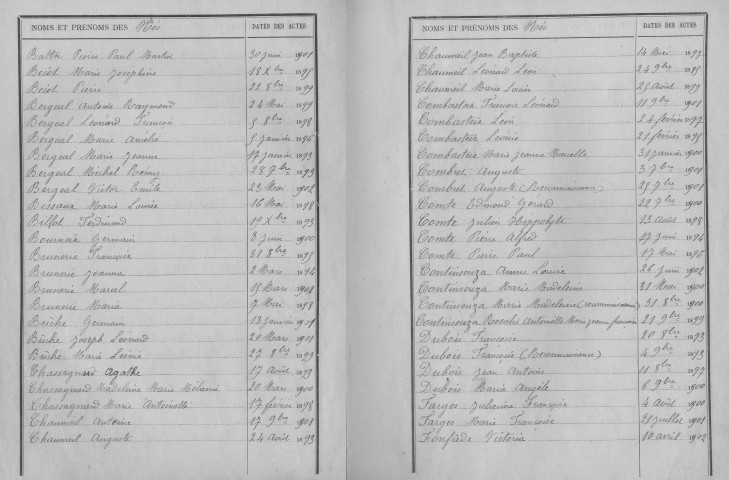 NOMS ET PRÉNOMS DES Nés DATES DES ACTES
Pierre Paul Martin 30 juin 1901
Beiot Marie Joséphine 18 Xbre 1895
Beiot Pierre 22 8bre 1899
Bergeal Antoine Raymond 24 Mai 1899
Bergeal Léonard François 5 8bre 1898
Bergeal Marie Amélie 5 janvier 1896
Bergeal Marie Jeanne 17 janvier 1893
Bergeal Michel Remy 28 7bre 1893
Bergeal Victor Emile 23 Mai 1902
Bessaux Marie Louise 16 Mai 1898
Ferdinand 19 Xbre 1893
Germain 3 juin 1900
Brunerie Françoise 31 8bre 1895
Brunerie Joanna 2 Mars 1894
Brunerie Marcel 15 Mars 1901
Brunerie Maria 7 Mai 1898
Buche Germain 13 janvier 1901
Buche Joseph Léonard 20 Mars 1901
Buche Marie 27 8bre 1899
Chassagnard Agathe 17 Août 1893
Chassagnard Madeleine Marie Mélanie 20 Mars 1900
Chassagnard Marie Antoinette 17 février 1898
Chaumeil Antoine 17 9bre 1901
Chaumeil Auguste 24 Août 1893
NOMS ET PRÉNOMS DES Nés DATES DES ACTES
Chaumeil Jean Baptiste 14 Mai 1897
Chaumeil Léonard Léon 24 9bre 1895
Chaumeil Marie Louise 25 Août 1899
Combasteix François Léonard 11 9bre 1901
Combasteix Léon 24 février 1897
Combasteix Léonie 21 février 1895
Combasteix Marie Jeanne Marcelle 31 janvier 1900
Combret Auguste 3 7bre 1901
Combret Auguste (Reconnaissance) 25 7bre 1901
Comte Edmond Gérard 22 7bre 1900
Comte Julien Hippolyte 13 Août 1898
Comte Pierre Alfred 17 juin 1894
Comte Pierre Paul 17 Mai 1896
Continsouza Anne Louise 26 juin 1902
Continsouza Marie Madeleine 31 Mai 1900
Continsouza Marie Madeleine (reconnaissance) 31 8bre 1900
Continsouza Rosalie Antoinette Marie Jeanne Françoise 21 9bre 1899
Dubois Françoise 20 8bre 1893
Dubois Françoise (Reconnaissance) 4 9bre 1893
Dubois Jean Antoine 11 8bre 1897
Dubois Maria Angèle 6 9bre 1900
Farges Julienne Françoise 4 Août 1900
Farges Marie Françoise 21 juillet 1901
Fonfrède Victoria 10 avril 1902